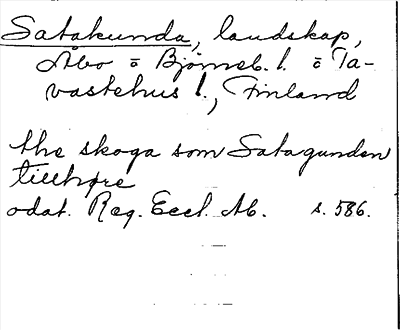 Satakunda, landskap,
Åbo o Björneb. l. o Ta-
vastehus l., Finland
the skoga som Satagunden
tillhøre
odat. Reg. Eccl. Ab. s. 586.